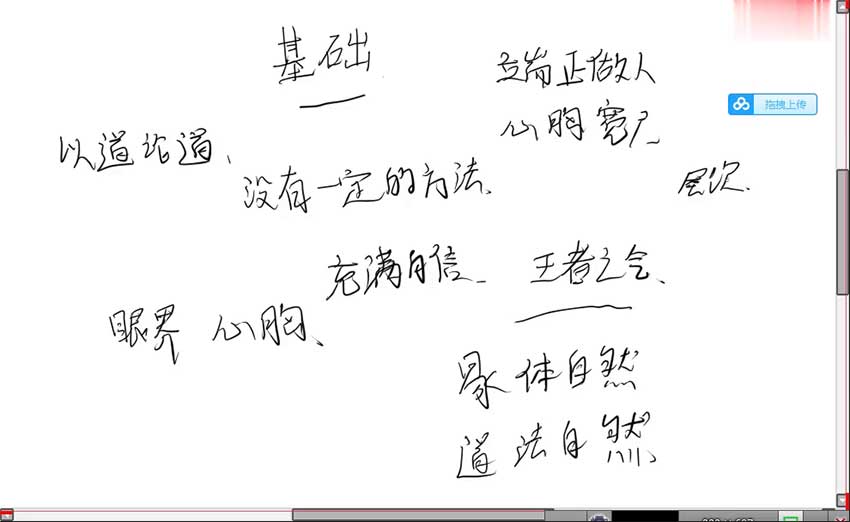 基础
端正做人
心胸宽广
拖拽上传
以道论道、
没有一定的方法、
层次.
充满自信
王者之气、
眼界 心胸、
体自然
道法自然